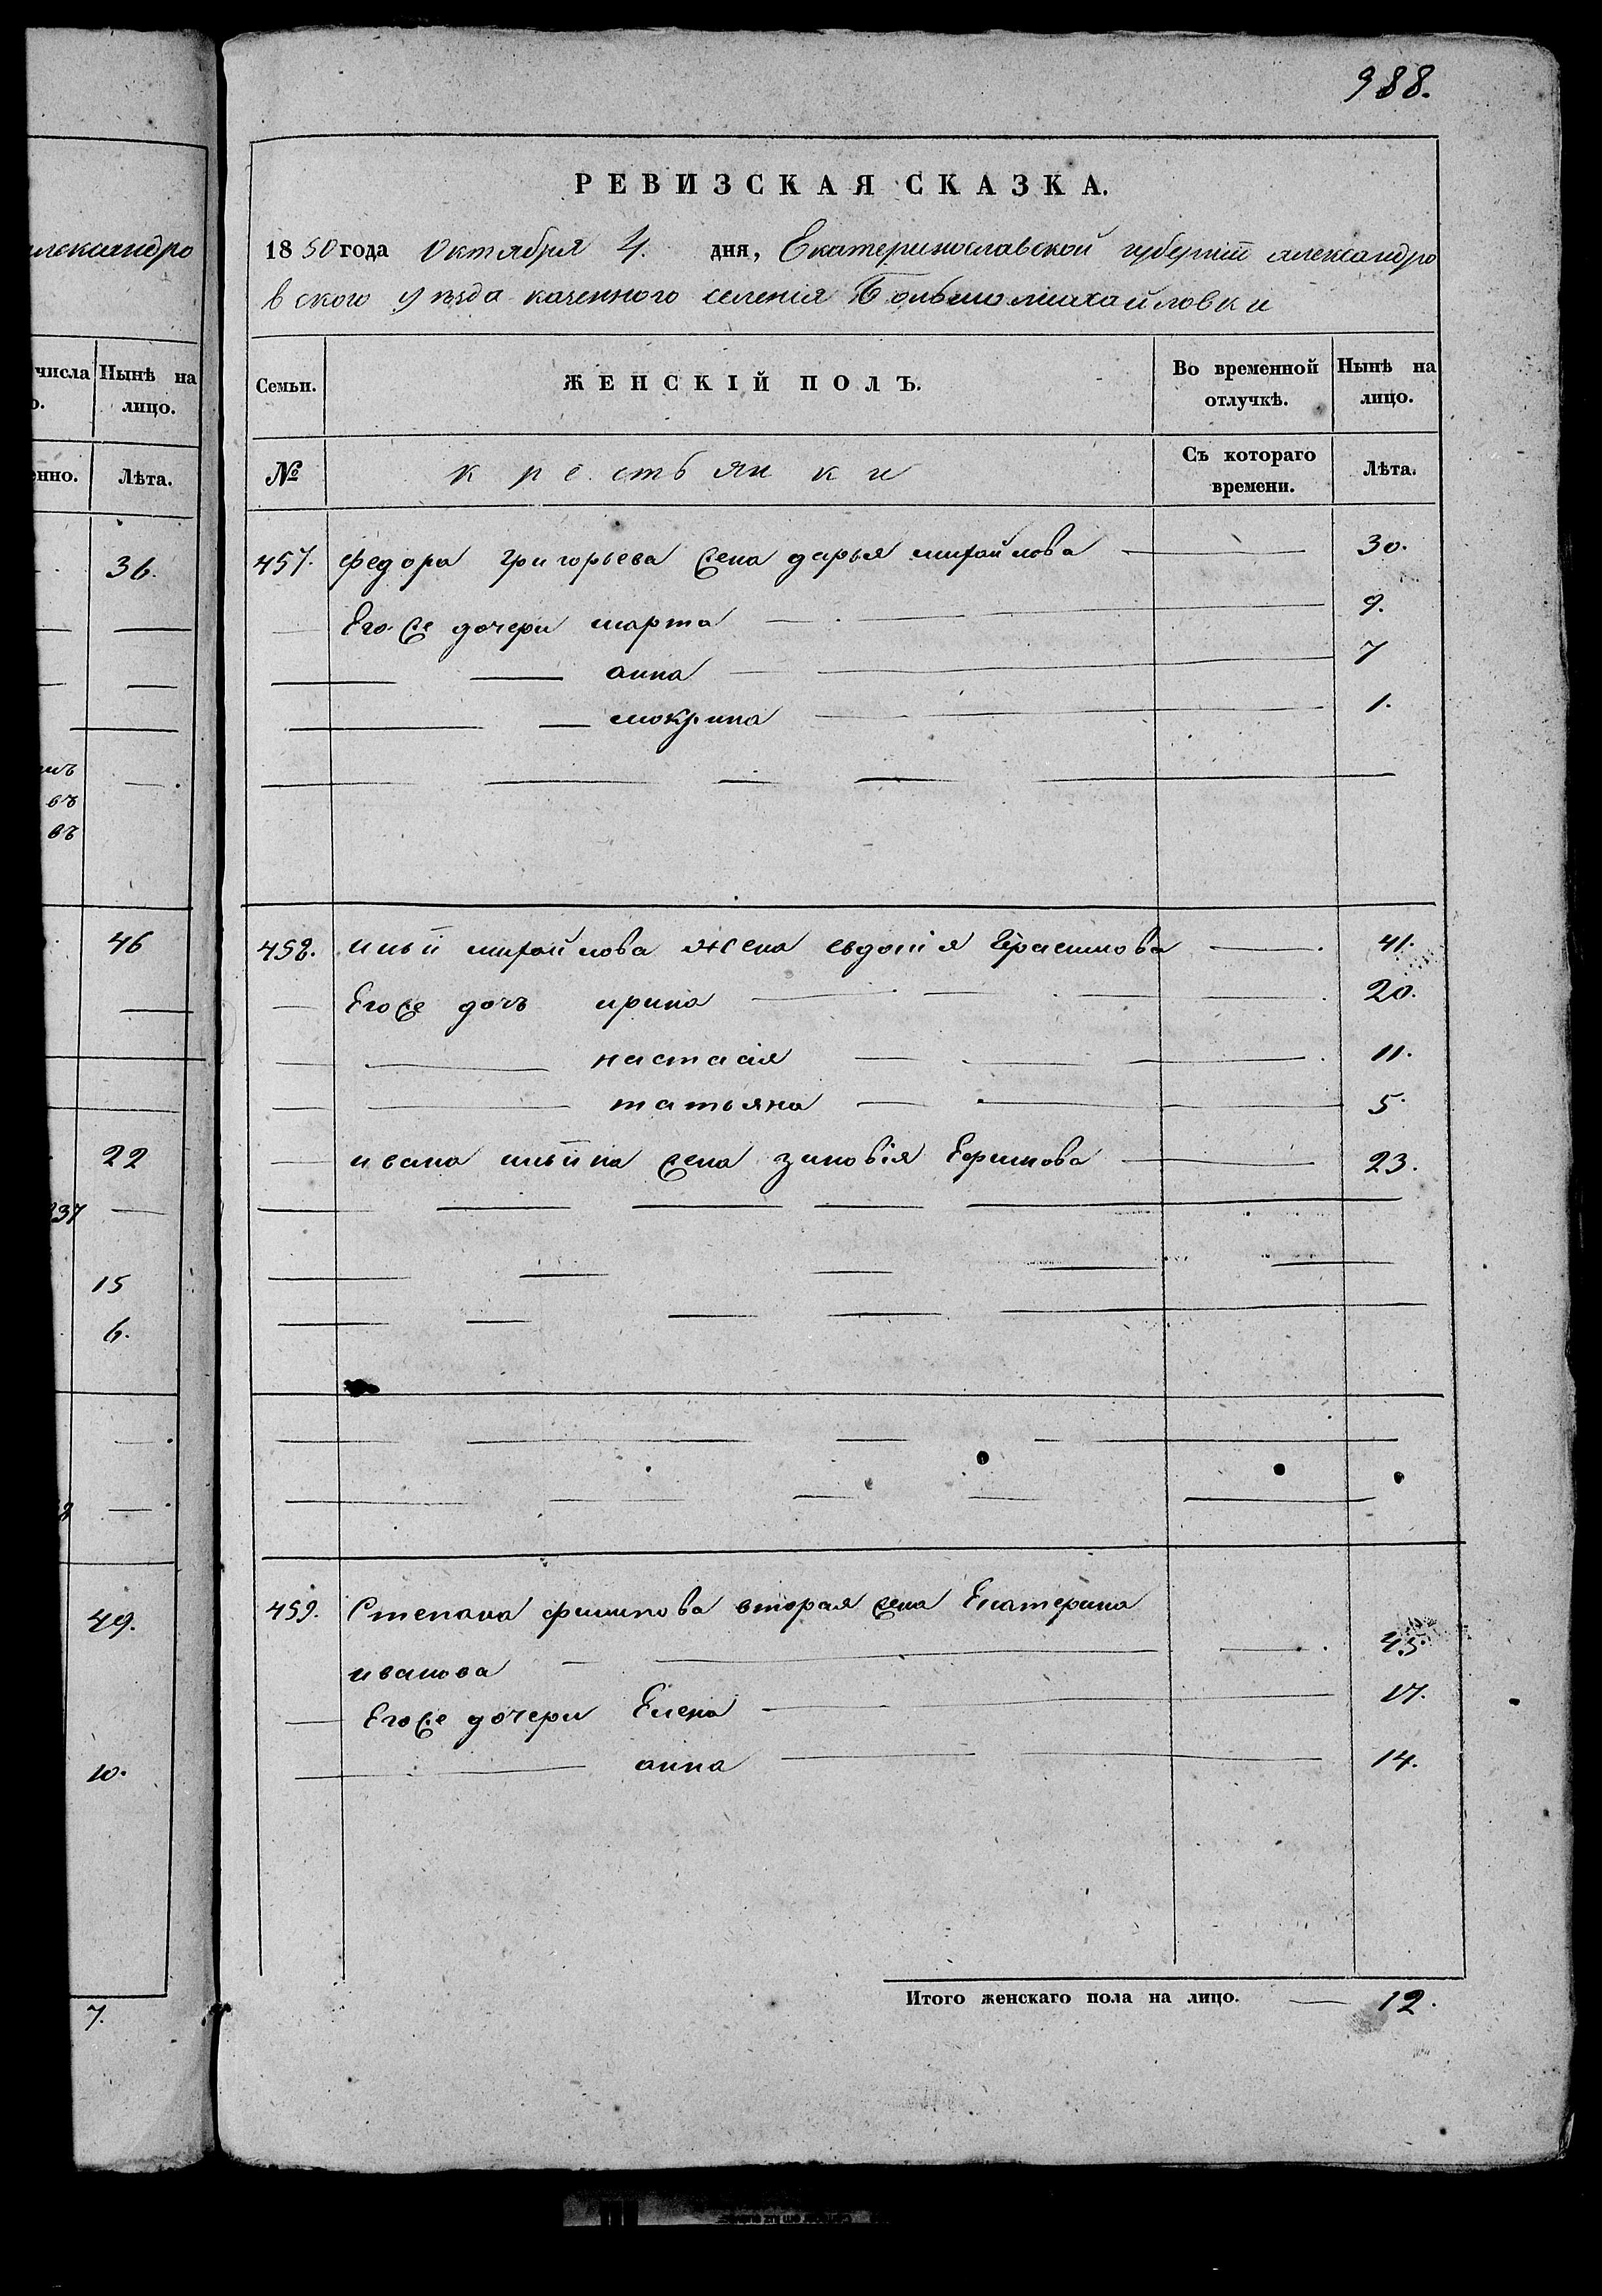 988.
РЕВИЗСКАЯ СКАЗКА.
1850 года Октября 4. дня, Екатеринославской губерніи александро
вского уѣзда казенного селенія Большомихайловки
Семьи. ЖЕНСКІЙ ПОЛЪ. Во временной отлучкѣ. Нынѣ на лицо.
№ крестьянки Съ котораго времени. Лѣта.
457. Федора Григорьева жена дарья михайлова 30.
Его же дочери марта 9.
анна 7
мокрина 1.
458. ильи михайлова жена евдокія Герасимова 41.
Его же дочь ирина 20.
настасія 11.
татьяна 5.
ивана ильина жена зиновія Ефимова 23.
459. Степана филипова вторая жена Екатерина
иванова 45.
Его же дочери Елена 17.
анна 14.
Итого женскаго пола на лицо. 12.
александро
числа Нынѣ на
о. лицо.
енно. Лѣта.
36.
въ
въ
46
22
37
15
6.
49.
10.
7.